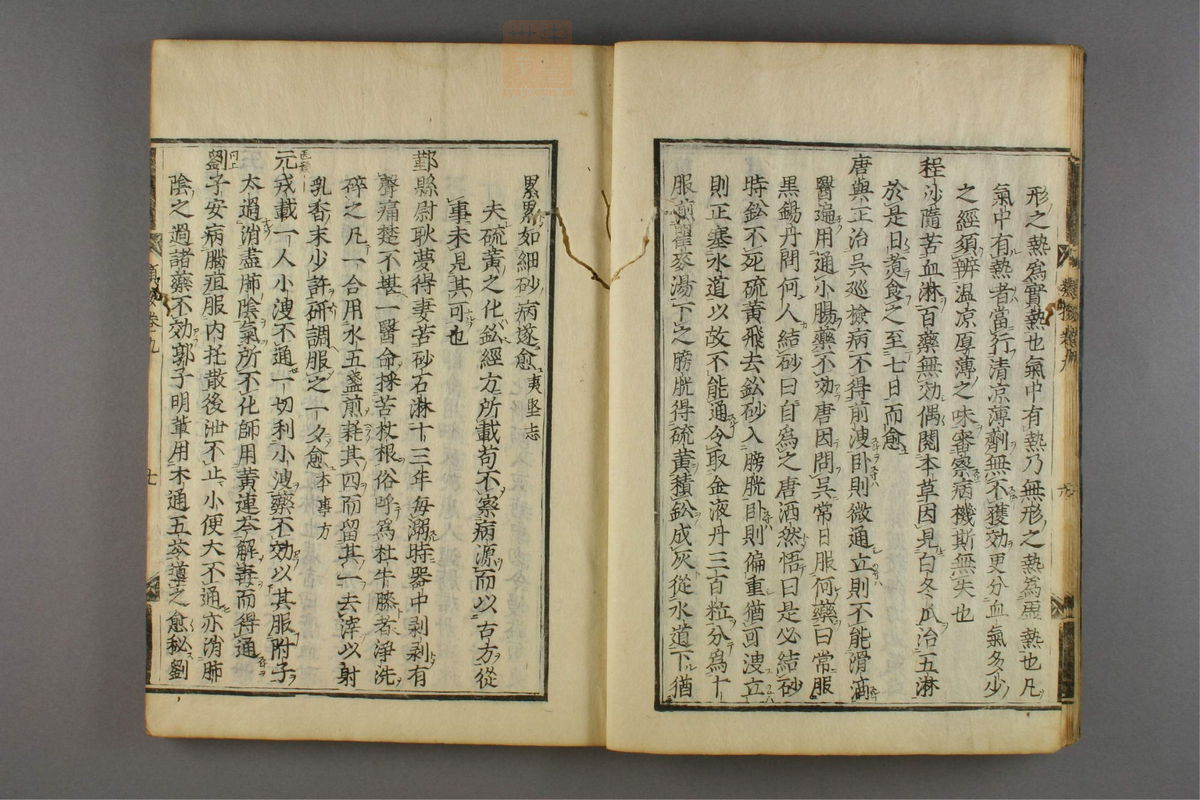 形之熱爲實熱也氣中有熱乃無形之熱爲虛熱也凡
氣中有熱者當行清凉薄劑無不獲効更分血氣多少
之經須辨温凉厚薄之味審察病機斯無失也
程沙隨苦血淋百藥無効偶閱本草因見白冬瓜治五淋
於是日煮食之至七日而愈
唐與正治吳巡檢病不得前溲卧則微通立則不能滑滴
醫遍用通小腸藥不効唐因問吳常日服何藥曰常服
黑錫丹問何人結砂曰自爲之唐洒然悟曰是必結砂
時鈆不死硫黄飛去鈆砂入膀胱卧則偏重猶可溲立
則正塞水道以故不能通令取金液丹三百粒分爲十
服煎瞿麥湯下之膀胱得硫黄積鈆成灰從水道下猶
累累如細砂病遂愈 夷堅志
夫硫黄之化鈆經方所載苟不察病源而以古方從
事未見其可也
鄞縣尉耿夢得妻苦砂石淋十三年每溺時器中剥剥有
聲痛楚不堪一醫命採苦杖根俗呼爲杜牛膝者淨洗
碎之凡一合用水五盞煎耗其四而留其一去滓以射
乳香末少許研調服之一夕愈 本事方
元戎載一人小溲不通一切利小溲藥不効以其服附子
太過消盡肺陰氣所不化師用黄連芩解毒而得通
劉子安病腦疽服内托散後泄不止小便大不通亦消肺
陰之過諸藥不効郭子明輩用木通五苓導之愈秘劉